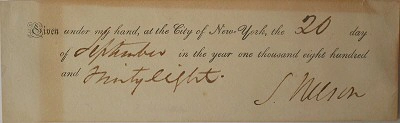 Given under my hand, at the City of New-York, the 20 day
of September in the year one thousand eight hundred
and thirty eight.
S. Nelson